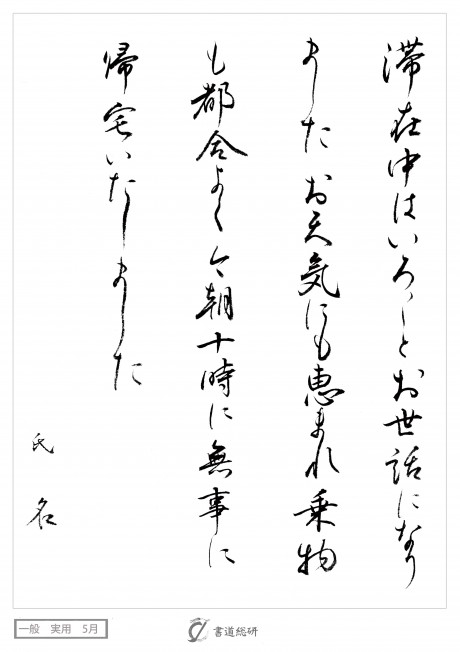 滞在中はいろいろとお世話になり
ました お天気にも恵まれ乗物
も都合よく今朝十時に無事に
帰宅いたしました
氏名
一般 実用 5月
書道総研